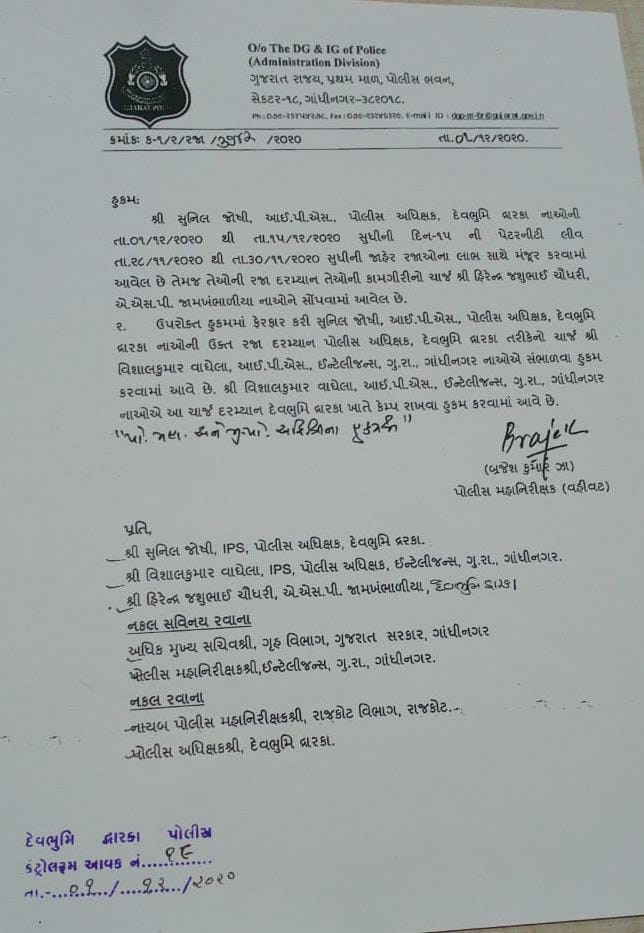 O/o The DG & IG of Police
(Administration Division)
ગુજરાત રાજ્ય, પ્રથમ માળ, પોલીસ ભવન,
સેકટર-૧૮, ગાંધીનગર-૩૮૨૦૧૮.
ક્રમાંક: ક-૧/૨/રજા / /૨૦૨૦ તા.૦૧/૧૨/૨૦૨૦.
હુકમ:
શ્રી સુનિલ જોષી, આઈ.પી.એસ., પોલીસ અધિક્ષક, દેવભુમિ દ્વારકા નાઓની
તા.૦૧/૧૨/૨૦૨૦ થી તા.૧૫/૧૨/૨૦૨૦ સુધીની દિન-૧૫ ની પેટરનીટી લીવ
તા.૨૮/૧૧/૨૦૨૦ થી તા.૩૦/૧૧/૨૦૨૦ સુધીની જાહેર રજાઓના લાભ સાથે મંજૂર કરવામાં
આવેલ છે તેમજ તેઓની રજા દરમ્યાન તેઓની કામગીરીનો ચાર્જ શ્રી હિરેન્દ્ર જશુભાઈ ચૌધરી,
એ.એસ.પી. જામખંભાળીયા નાઓને સોંપવામાં આવેલ છે.
૨. ઉપરોક્ત હુકમમાં ફેરફાર કરી સુનિલ જોષી, આઈ.પી.એસ., પોલીસ અધિક્ષક, દેવભુમિ
દ્વારકા નાઓની ઉક્ત રજા દરમ્યાન પોલીસ અધિક્ષક, દેવભુમિ દ્વારકા તરીકેનો ચાર્જ શ્રી
વિશાલકુમાર વાઘેલા, આઈ.પી.એસ., ઈન્ટેલીજન્સ, ગુ.રા., ગાંધીનગર નાઓએ સંભાળવા હુકમ
કરવામાં આવે છે. શ્રી વિશાલકુમાર વાઘેલા, આઈ.પી.એસ., ઈન્ટેલીજન્સ, ગુ.રા., ગાંધીનગર
નાઓએ આ ચાર્જ દરમ્યાન દેવભુમિ દ્વારકા ખાતે કેમ્પ રાખવા હુકમ કરવામાં આવે છે.
(બ્રજેશ કુમાર ઝા)
પોલીસ મહાનિરીક્ષક (વહીવટ)
પ્રતિ,
શ્રી સુનિલ જોષી, IPS, પોલીસ અધિક્ષક, દેવભુમિ દ્વારકા.
શ્રી વિશાલકુમાર વાઘેલા, IPS, પોલીસ અધિક્ષક, ઈન્ટેલીજન્સ, ગુ.રા., ગાંધીનગર.
શ્રી હિરેન્દ્ર જશુભાઈ ચૌધરી, એ.એસ.પી. જામખંભાળીયા, દેવભુમિ દ્વારકા
નકલ સવિનય રવાના
અધિક મુખ્ય સચિવશ્રી, ગૃહ વિભાગ, ગુજરાત સરકાર, ગાંધીનગર
પોલીસ મહાનિરીક્ષકશ્રી,ઈન્ટેલીજન્સ, ગુ.રા., ગાંધીનગર.
નકલ રવાના
નાયબ પોલીસ મહાનિરીક્ષકશ્રી, રાજકોટ વિભાગ, રાજકોટ.
પોલીસ અધિક્ષકશ્રી, દેવભુમિ દ્વારકા.
દેવભુમિ દ્વારકા પોલીસ
કંટ્રોલરૂમ આવક નં.....૧૯.....
તા.-...૦૧.../...૧૨.../૨૦૨૦